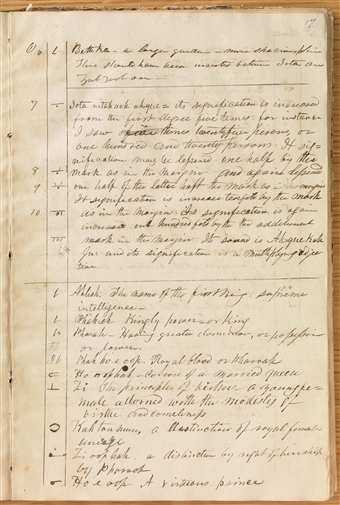 17
Beth ka - a larger garden - more spacious plain
This should have been inserted between Iota and
Zub Zool oan -
7 Iota nitahveh ahque = its signification is increased
from the first degree five times: for instance
I saw five times twenty five persons, or
one hundred and twenty persons. It sig-
nification may be lessened one half by the
8 mark as in the margin and again lessened
9 one half of the latter half the mark as in the margin
It signification is increase twofold by the mark
10 as in the margin. Its signification is again
increase one hundred fold by the additional
mark in the margin. Its sound is
and its signification is a multiplying
Ahlish. The name of the first Being. supreme
intelligence -
Phah-eh. Kingly power - or King
Pharah. Having greater dominion, or possession
or power.
Phah ho e oop. Royal blood or Pharaoh
Ho oop hah. Crown of a married queen
Zi The principles of virtue a young fe=
male adorned with the modesty of
virtue and comeliness
Kah tou mun, a distinction of royal female
lineage
Zi oop hah. a distinction by right of heirship
by Pharaoh
Ho e oop A virtuous prince